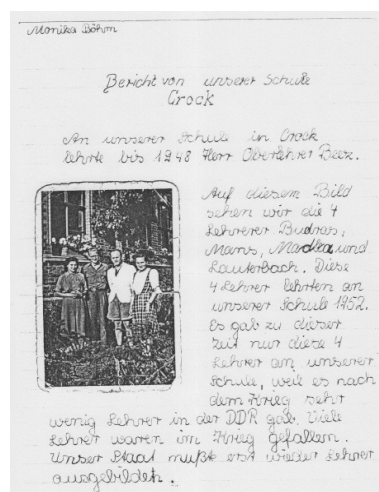 Monika Böhm
Bericht von unserer Schule
Crock
An unserer Schule in Crock
lehrte bis 1948 Herr Oberlehrer Beez.
Auf diesem Bild
sehen wir die 4
Lehrerer Budras,
Mans, Madka und
Lauterbach. Diese
4 Lehrer lehrten an
unserer Schule 1952.
Es gab zu dieser
Zeit nur diese 4
Lehrer an unserer
Schule, weil es nach
dem Krieg sehr
wenig Lehrer in der DDR gab. Viele
Lehrer waren im Krieg gefallen.
Unser Staat mußte erst wieder Lehrer
ausgebilden.